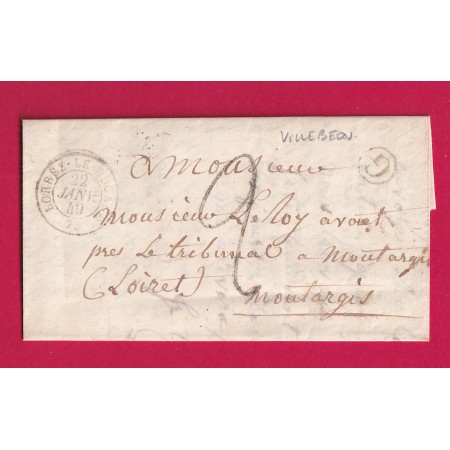 VILLEBEON.
LORREZ-LE-BOCAGE
22
JANV.
49
G
2
A Monsieur
Monsieur LeRoy avoet
pres Le tribunal a Montargis
(Loiret)
Montargis